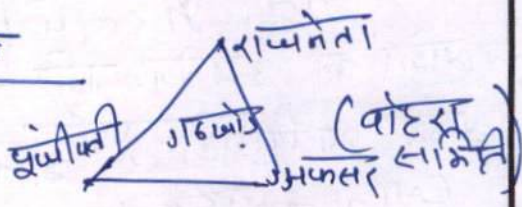 राजनेता
पूंजीपती
गठजोड़
अफसर
(वोहरा
समिति)